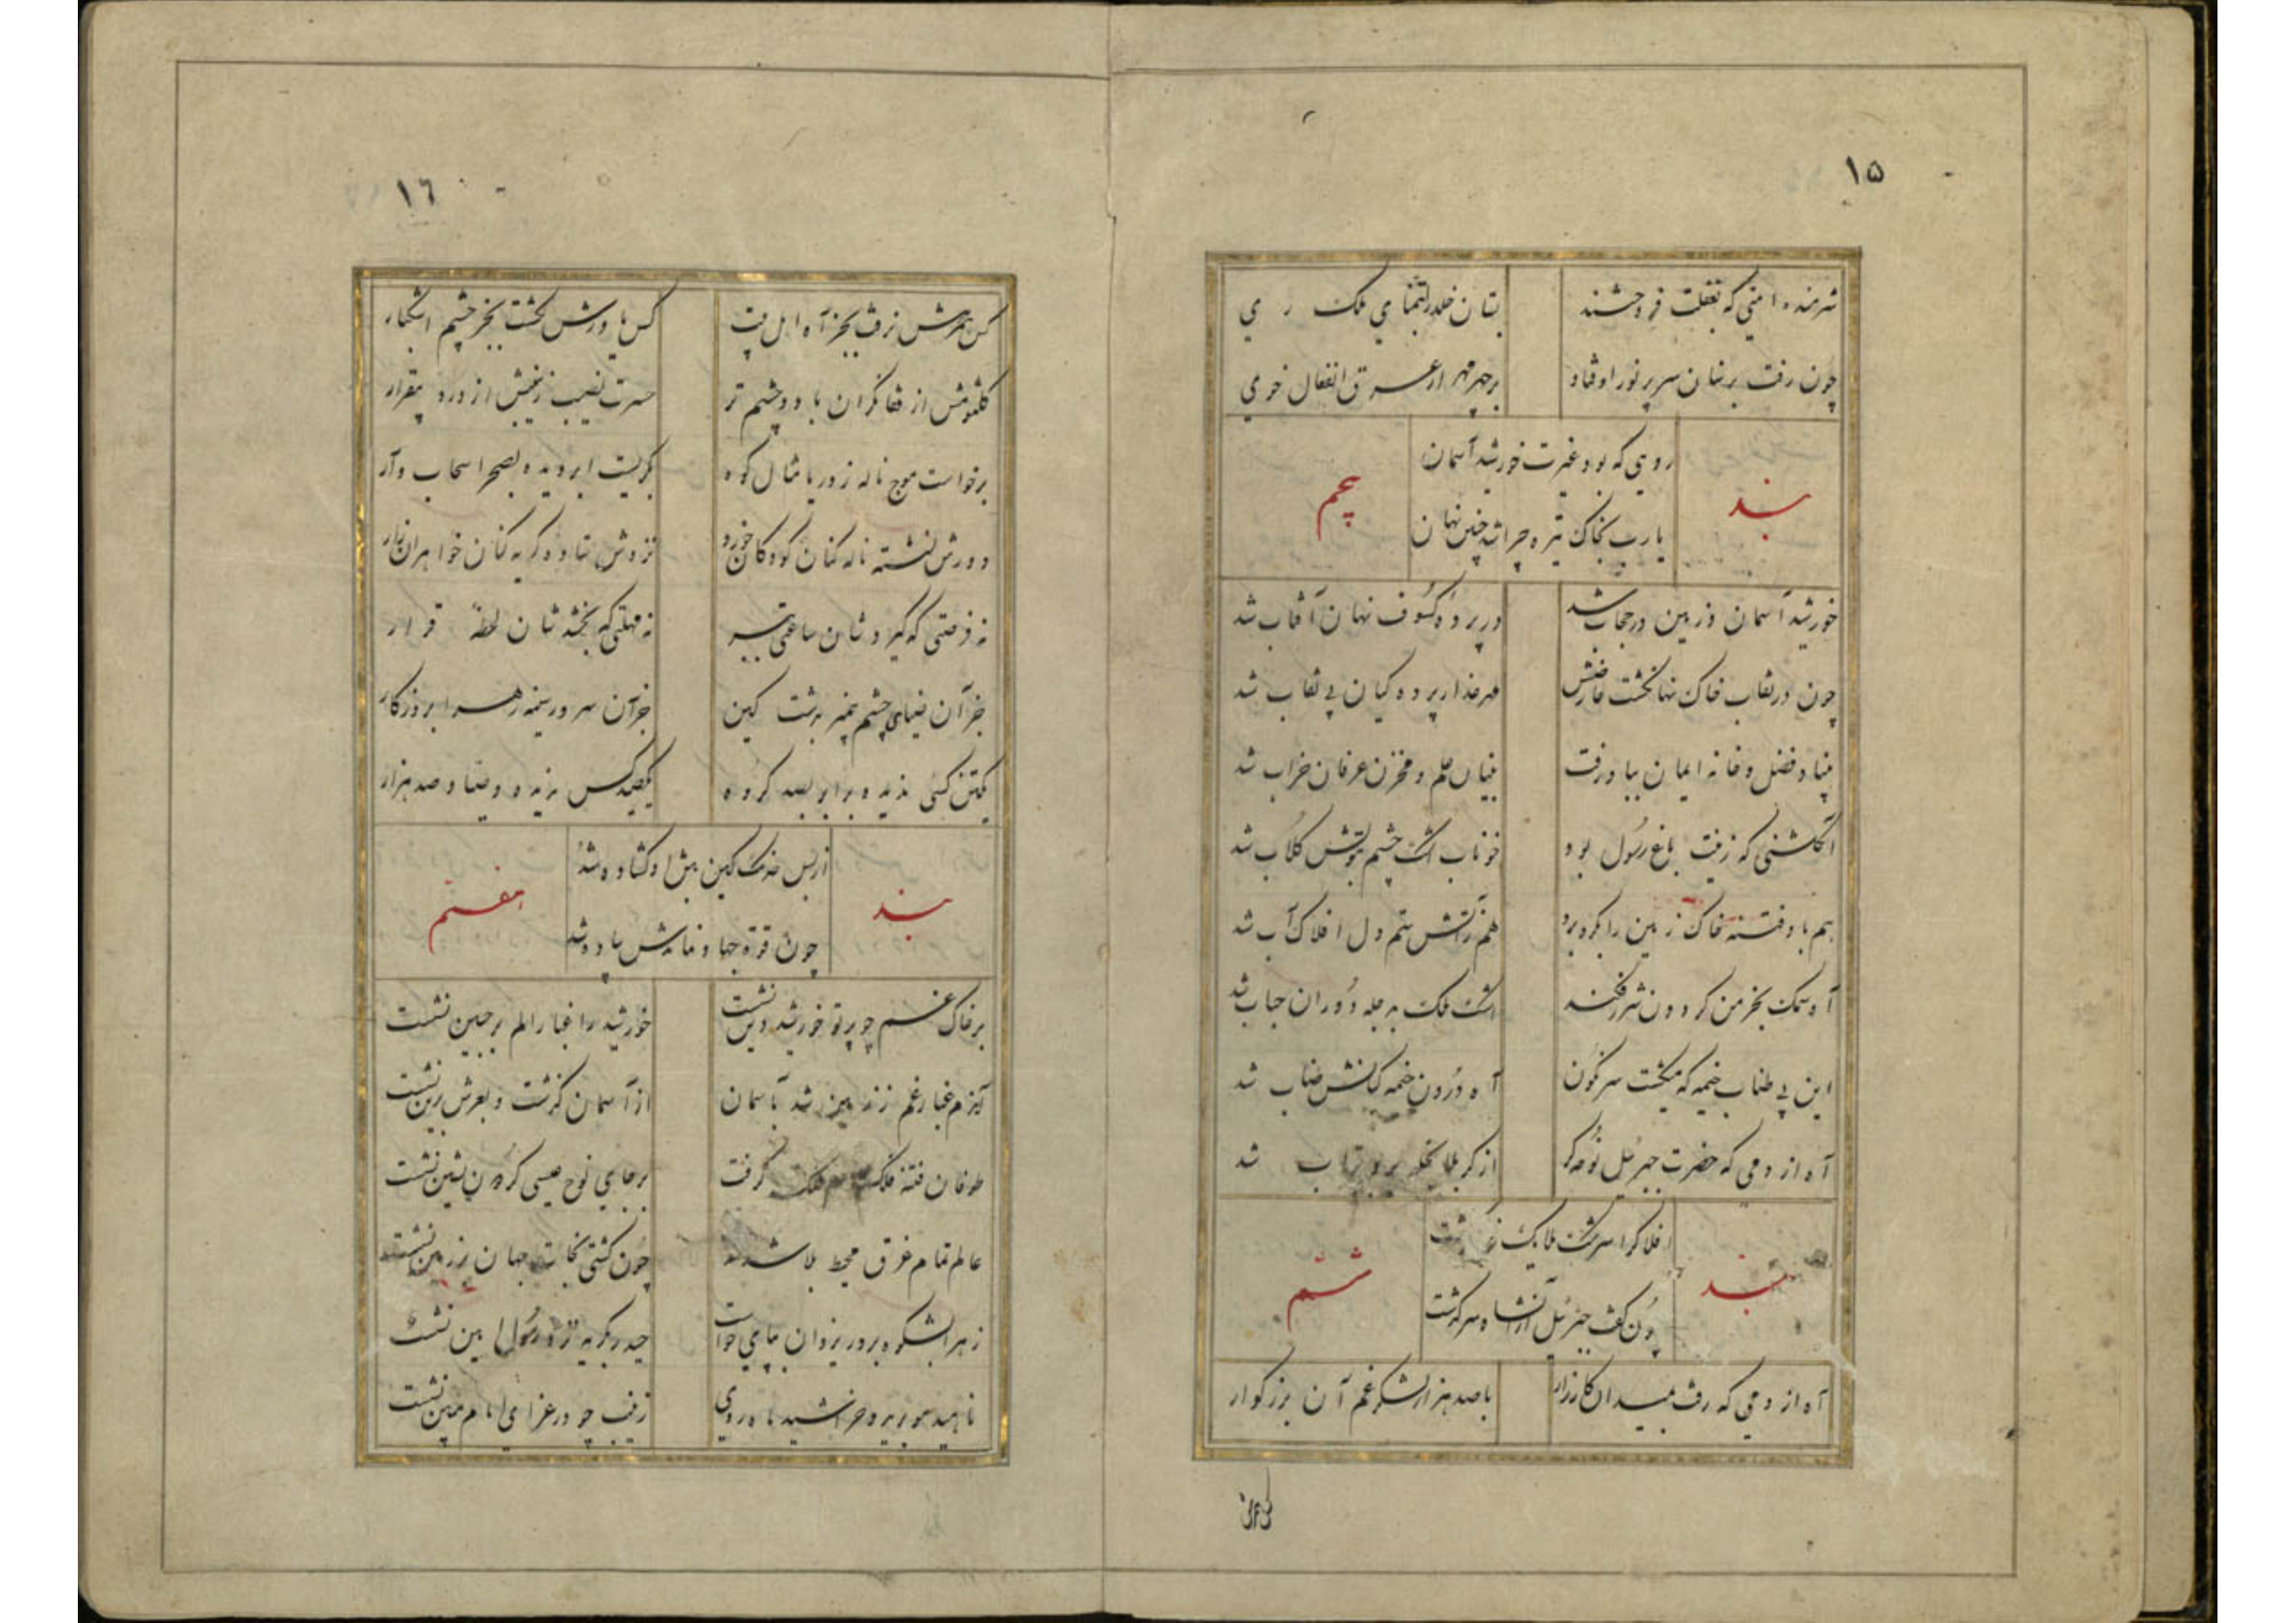 ۱۵
شرمنده امتی که بغفلت فروختند
بستان خلد را بتمنای ملک ری
چون رفت بر سنان سر پر نور او فتاد
بر چهر مهر از عرق انفعال خوی
بند پنجم
روی که بود غیرت خورشید آسمان
یارب بخاک تیره چرا شد چنین نهان
خورشید آسمان و زمین در حجاب شد
در پرده کسوف نهان آفتاب شد
چون در نقاب خاک نهان گشت عارضش
هر عذار پرده کیان بی نقاب شد
بنیاد فضل و خانه ایمان بباد رفت
بنیان علم و مخزن عرفان خراب شد
آن گلشنی که زینت باغ رسول بود
خوناب اشک چشم بتولش گلاب شد
هم باد فتنه خاک زمین را بگره برد
هم ز آتش ستم دل افلاک آب شد
آه سمک بخرمن گردون شرر فکند
اشک ملک به دجله دوران حباب شد
این بی طناب خیمه که میگشت سرنگون
آه درون خیمه کیانش طناب شد
آه از دمی که حضرت جبرئیل نوحه گر
از کربلا بخلد شد
بند ششم
افلاک را سرشک ملایک گذشت
چون گفت جبرئیل از آن شاه سرگذشت
آه از دمی که رفت بمیدان کارزار
با صد هزار لشکر غم آن بزرگوار
۱٦
کس همرهش نرفت بجز آه اهل بیت
کس یاورش نگشت بجز چشم اشکبار
کلثومش از قفا نگران با دو چشم تر
حسرت نصیب زینبش از درد بیقرار
برخواست موج ناله ز دریا مثال کوه
بگریست ابر دیده بصحرا سحاب وار
دورش نشسته ناله کنان کودکان خورد
نزدش ستاده گریه کنان خواهران زار
نه فرصتی که گیردشان ساعتی ببر
نه مهلتی که بخشدشان لحظهٔ قرار
جز آن ضیای چشم پیمبر بدشت کین
جز آن سرور سینه زهرا بروزگار
یکتن کسی ندیده برابر بصد گروه
یکصید کس ندیده و صیاد صد هزار
بند هفتم
از بس خدنگ کین بتن او گشاده شد
چون قوة جهاد نماندش پیاده شد
بر خاک غم چو پرتو خورشید دین نشست
خورشید را غبار الم بر جبین نشست
آندم غبار غم ز زمین شد بآسمان
از آسمان گذشت و بعرش برین نشست
طوفان فتنه فلک گرفت
بر جای نوح عیسی گردون نشین نشست
عالم تمام غرق محیط بلا شد
چون کشتی نجات جهان بر زمین نشست
زهرا بشکوه بر در یزدان بپای خواست
حیدر بگریه نزد رسول امین نشست
ناهید مو بریده خراشید ماه روی
زینب چو در عزای امام مبین نشست